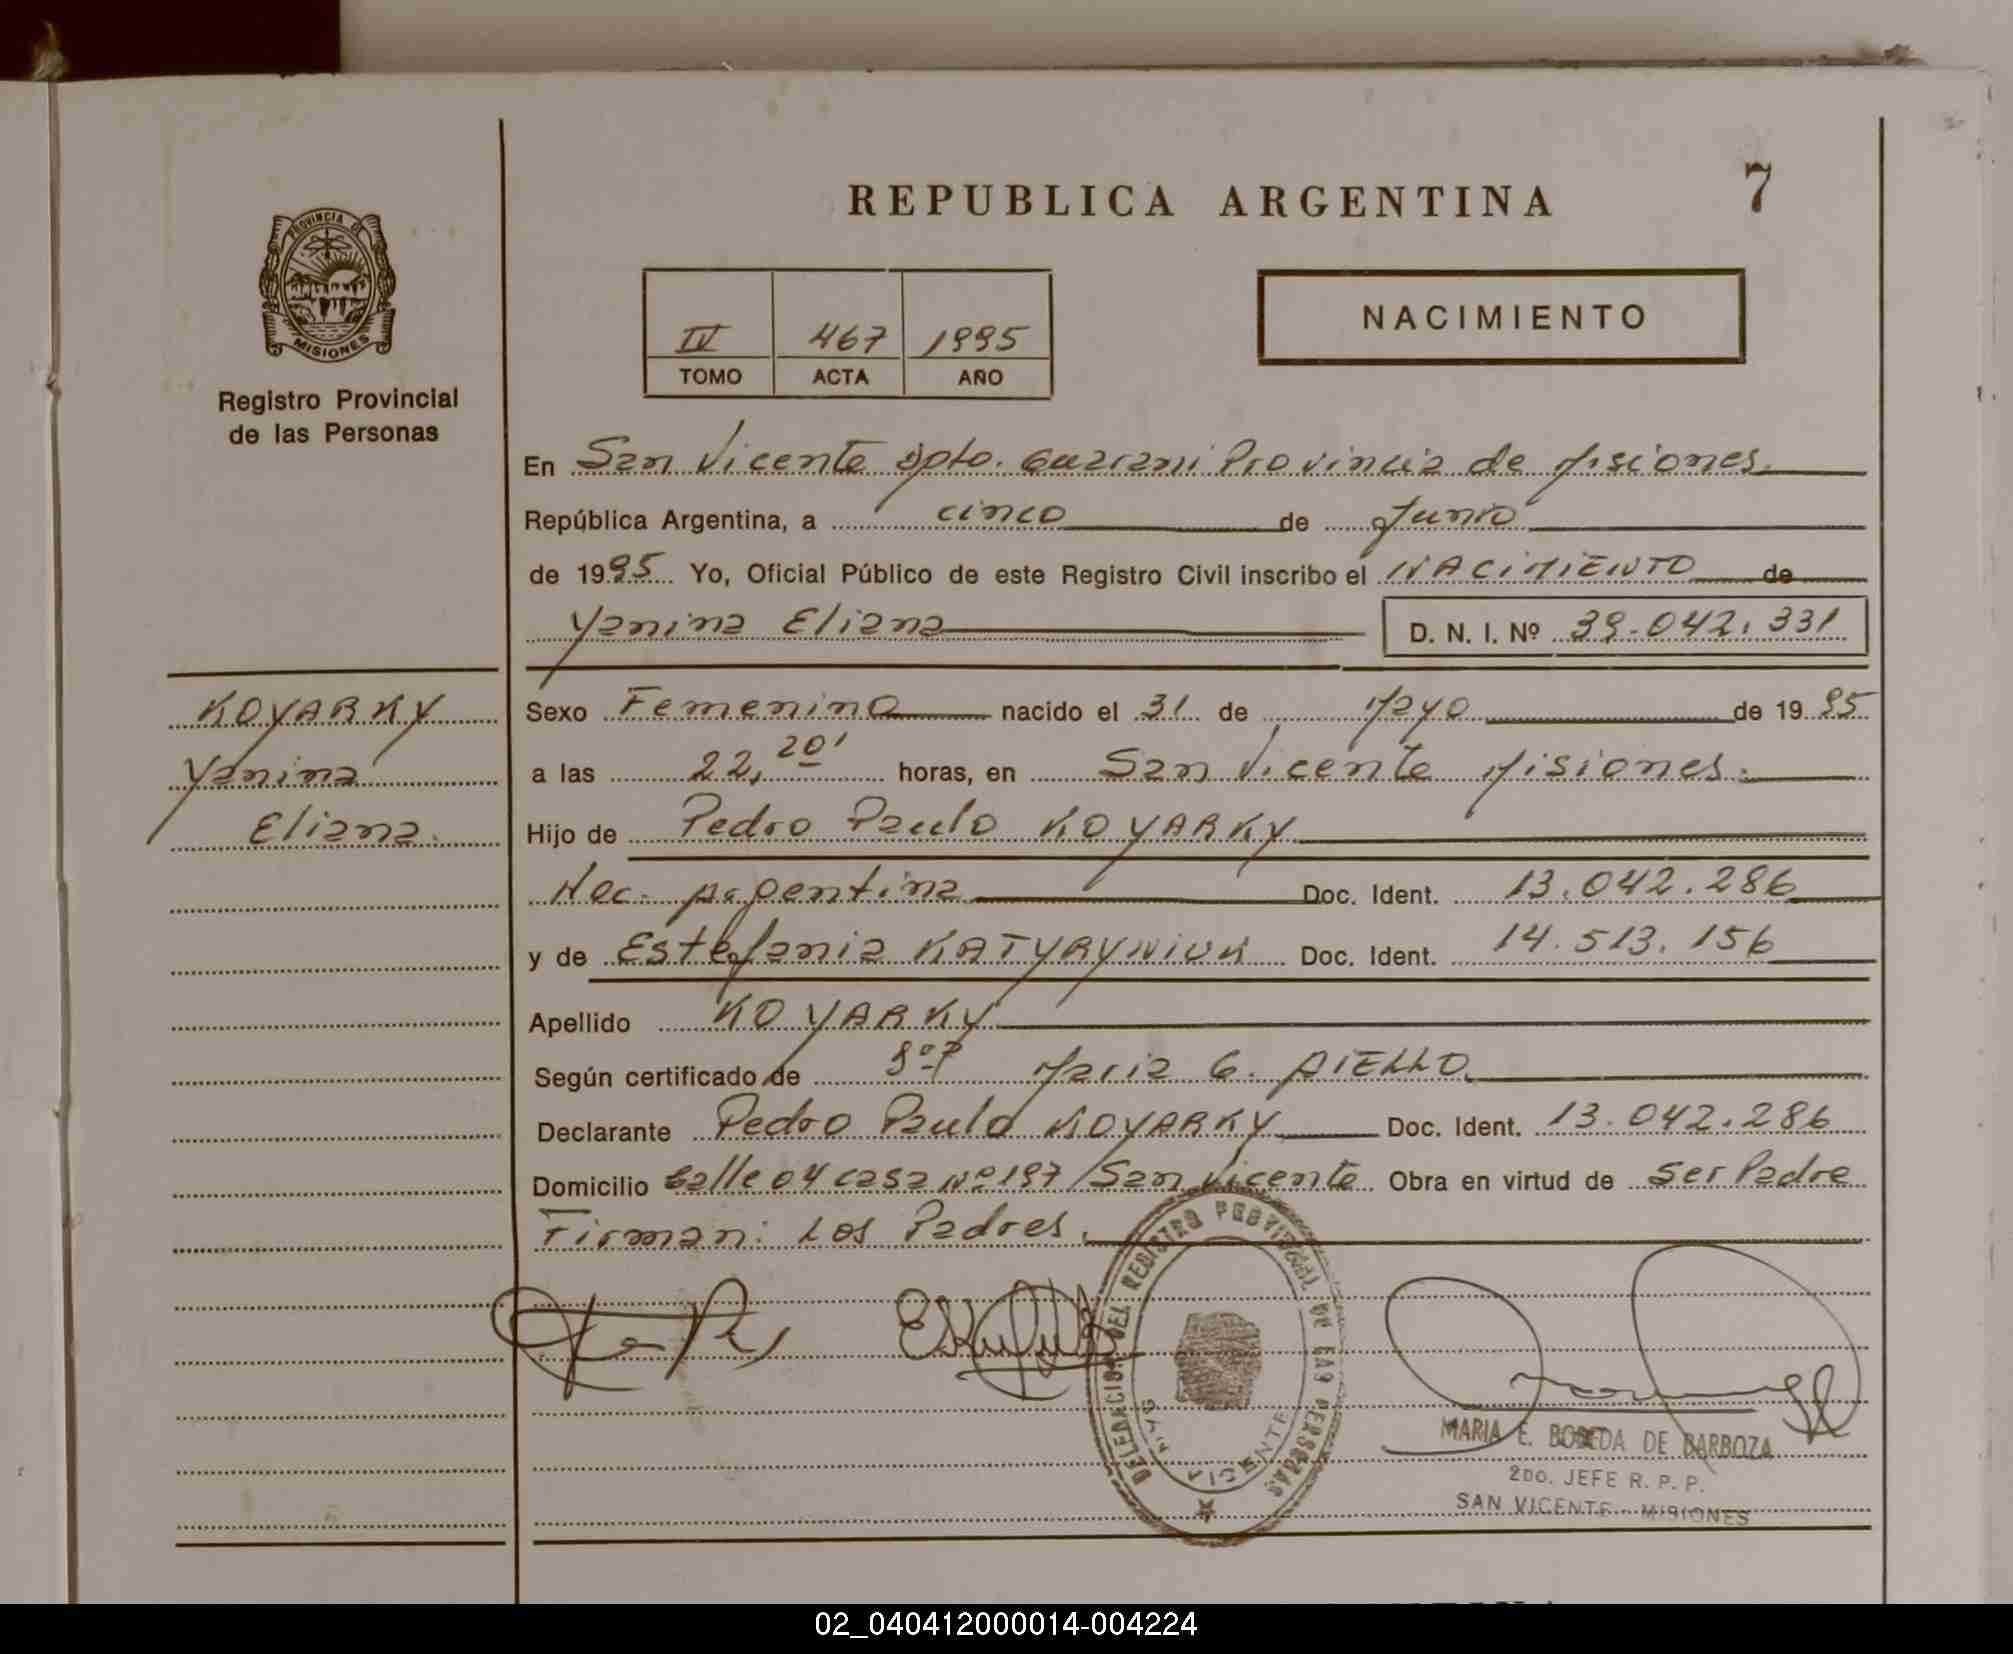 PROVINCIA DE
MISIONES
Registro Provincial
de las Personas
REPUBLICA ARGENTINA
7
IV 467 1995
TOMO ACTA AÑO
NACIMIENTO
En San Vicente Dpto. Guarani Provincia de Misiones.
República Argentina, a cinco de Junio
de 1995 Yo, Oficial Público de este Registro Civil inscribo el NACIMIENTO de
Yanina Eliana D. N. I. Nº 39.042.331
KOYARKY
Yanina
Eliana.
Sexo Femenino nacido el 31 de Mayo de 1995
a las 22,20' horas, en San Vicente Misiones.
Hijo de Pedro Paulo KOYARKY
Nac. Argentina Doc. Ident. 13.042.286
y de Estefania KATYRYNIUK Doc. Ident. 14.513.156
Apellido KOYARKY
Según certificado de Maria G. AIELLO
Declarante Pedro Paulo KOYARKY Doc. Ident. 13.042.286
Domicilio Calle 04 casa Nº 197 San Vicente Obra en virtud de ser Padre
Firman: Los Padres.
DELEGACION DEL REGISTRO PROVINCIAL DE LAS PERSONAS
SAN VICENTE
MARIA E. BOBEDA DE BARBOZA
2DO. JEFE R. P. P.
SAN VICENTE - MISIONES
02_040412000014-004224